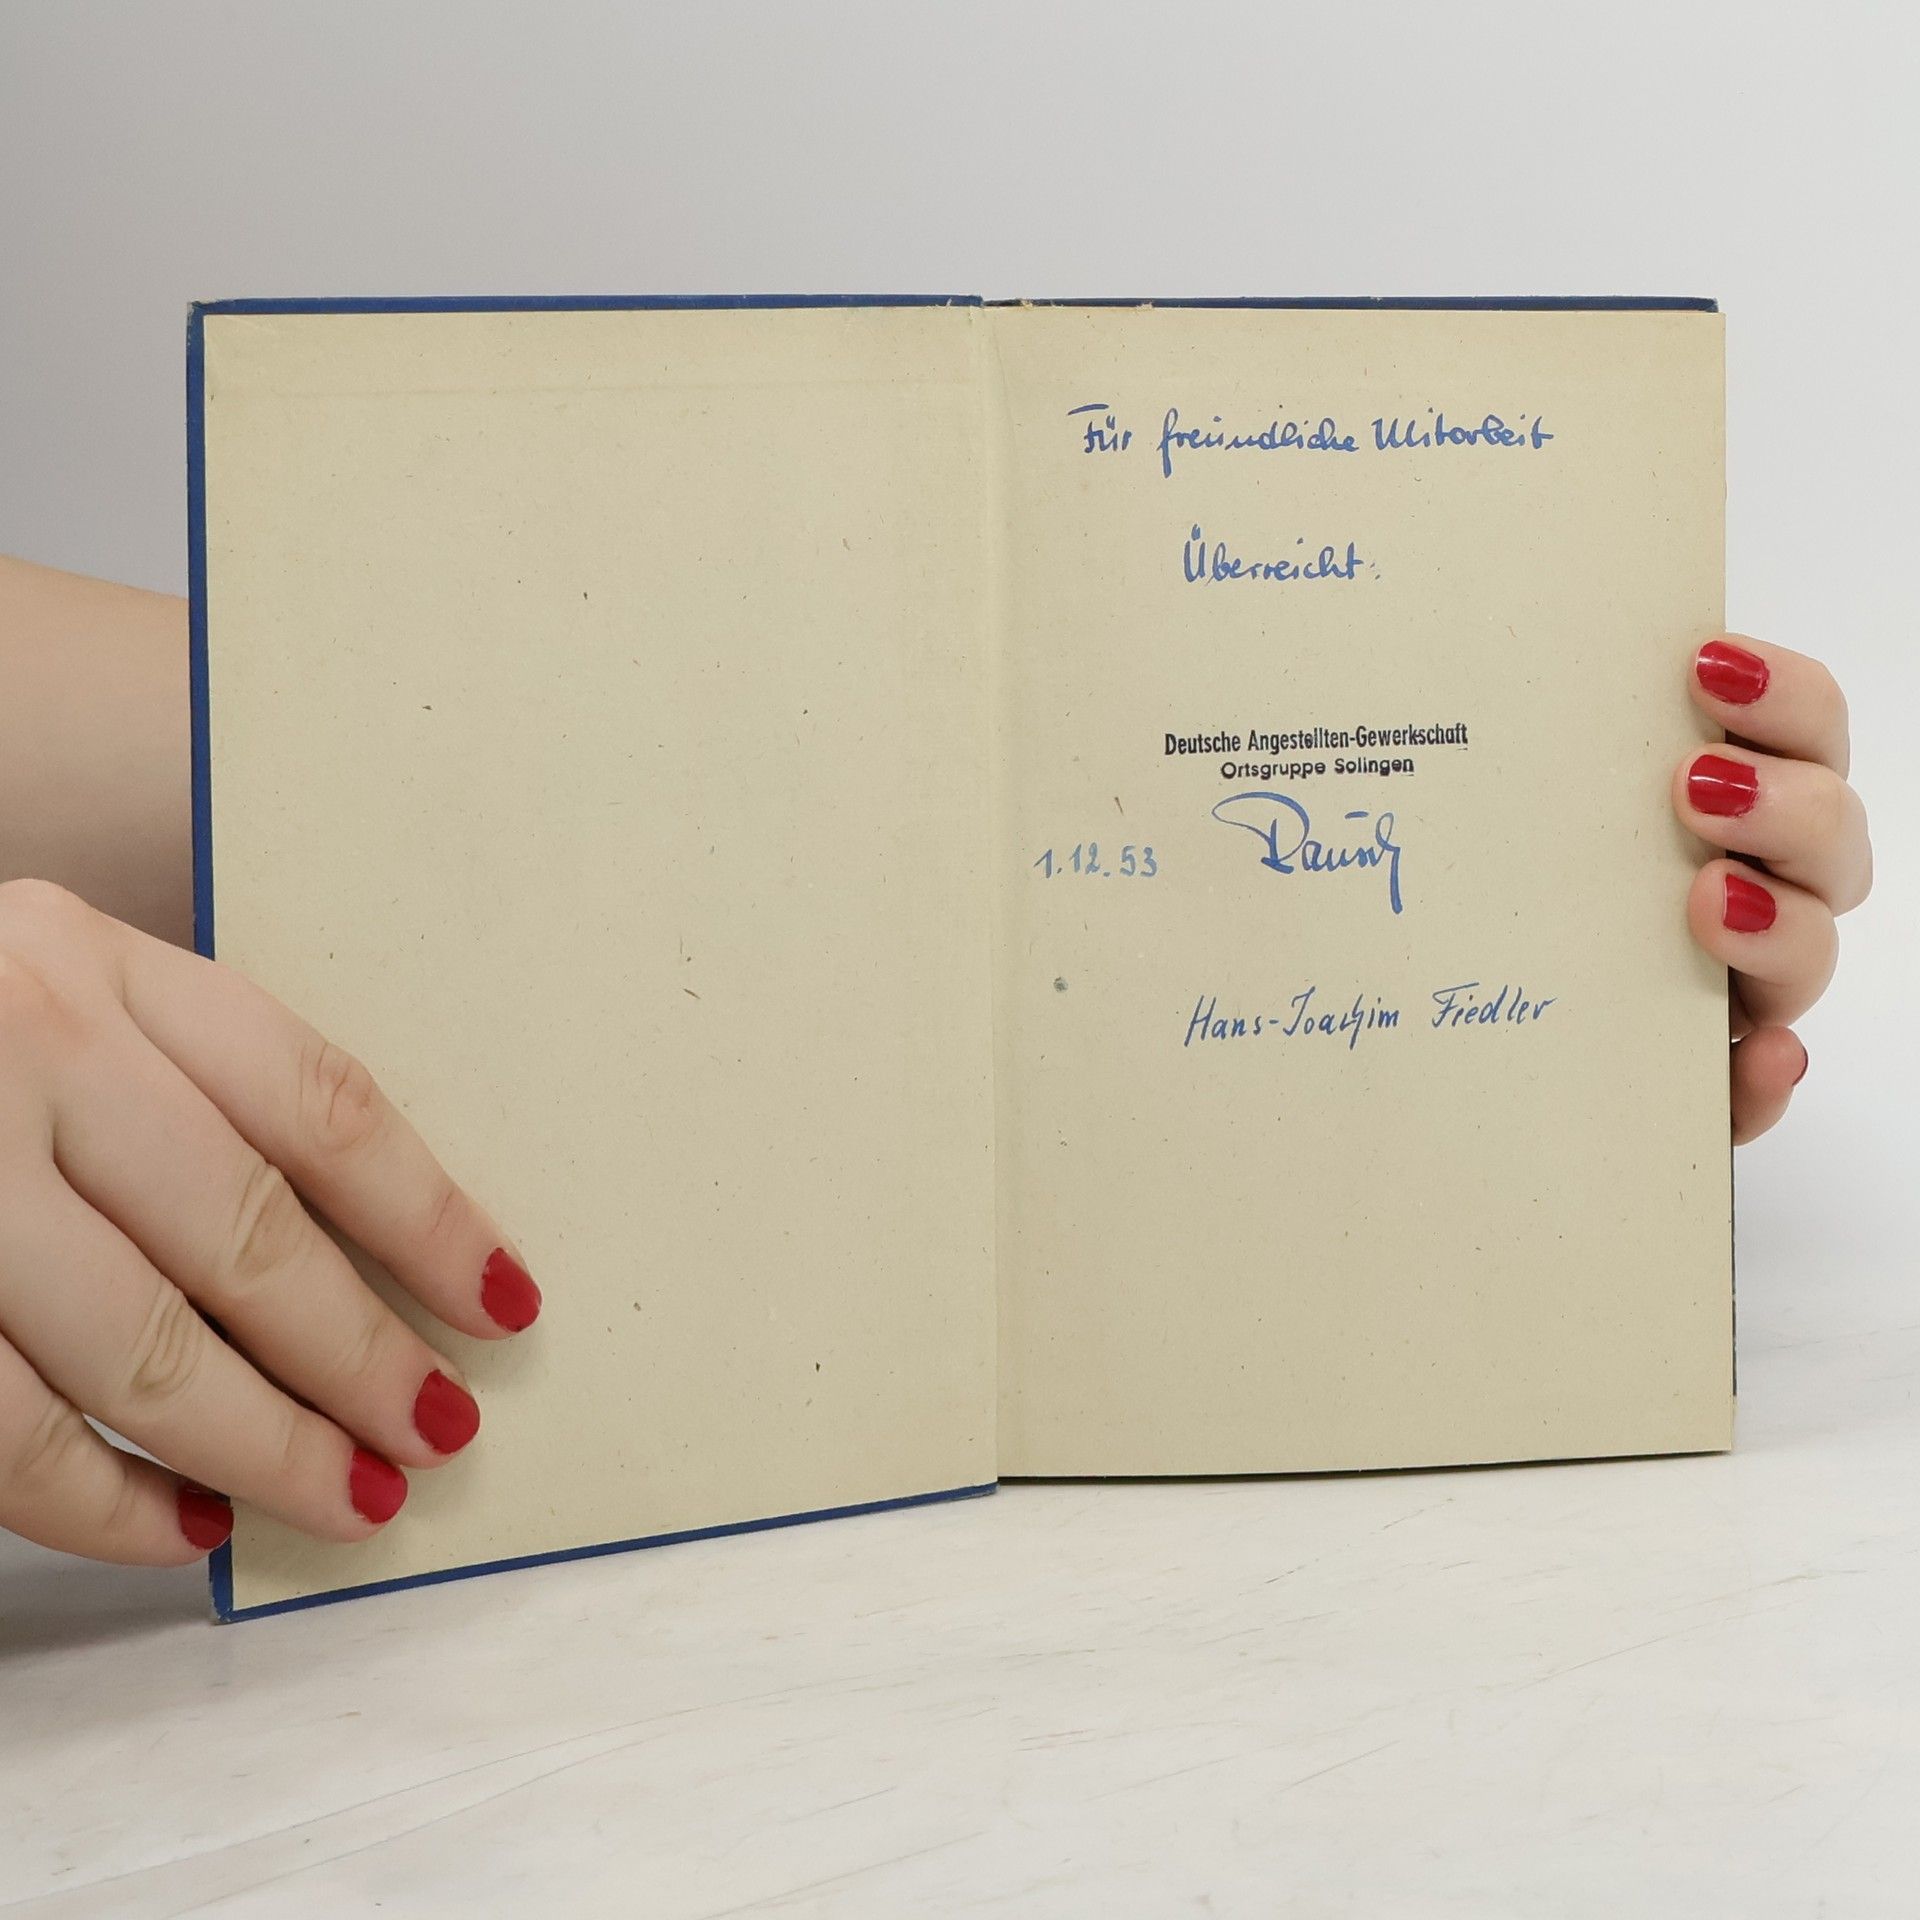 Für freundliche Mitarbeit
Überreicht:
Deutsche Angestellten-Gewerkschaft
Ortsgruppe Solingen
1.12.53 Rausch
Hans-Joachim Fiedler